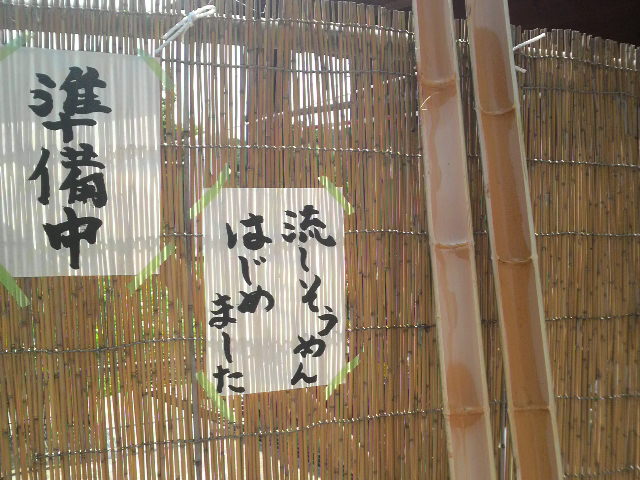 準備中
流しそうめん
はじめ
ました